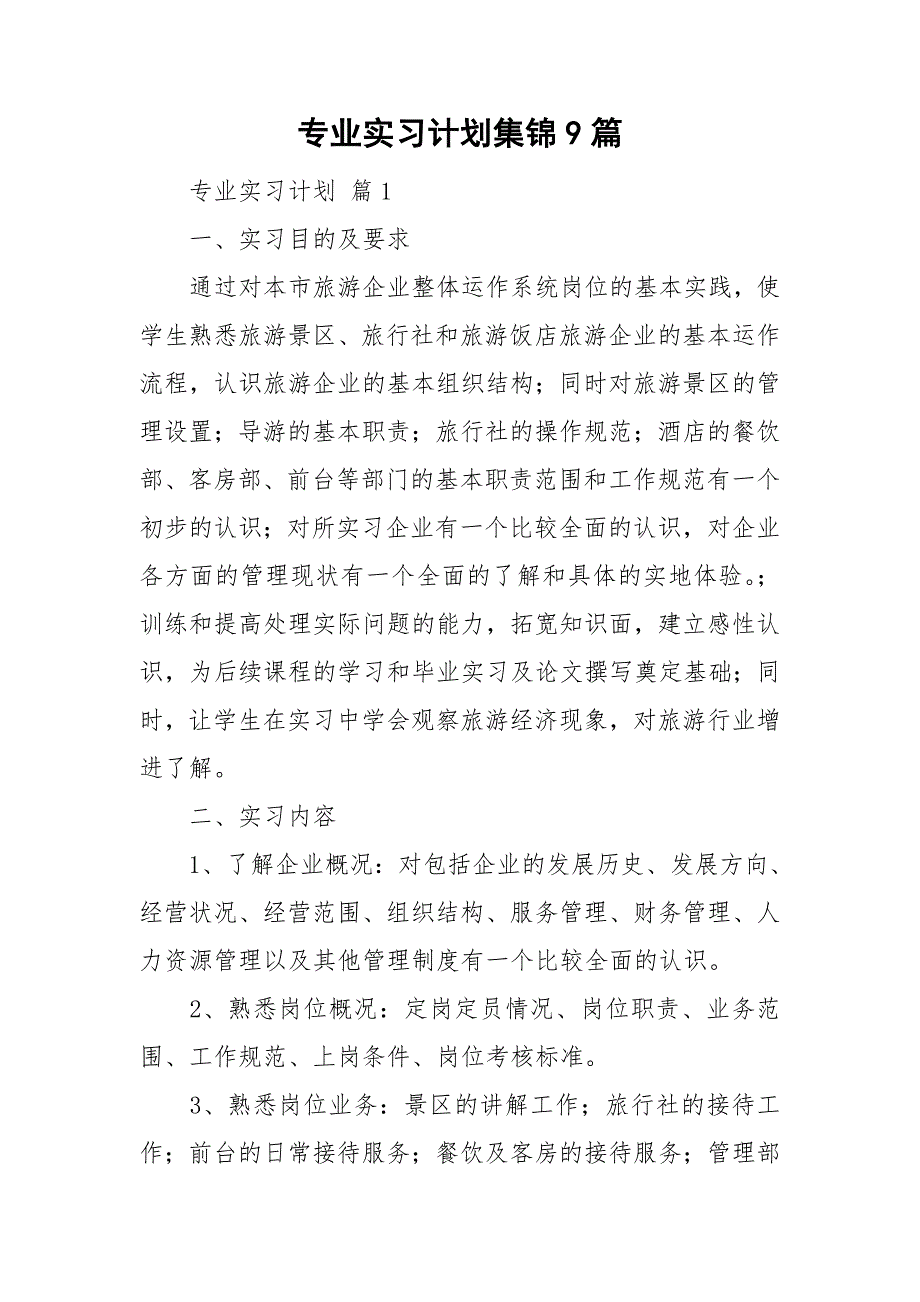 专业实习计划集锦9篇
专业实习计划 篇1
一、实习目的及要求
通过对本市旅游企业整体运作系统岗位的基本实践，使
学生熟悉旅游景区、旅行社和旅游饭店旅游企业的基本运作
流程，认识旅游企业的基本组织结构；同时对旅游景区的管
理设置；导游的基本职责；旅行社的操作规范；酒店的餐饮
部、客房部、前台等部门的基本职责范围和工作规范有一个
初步的认识；对所实习企业有一个比较全面的认识，对企业
各方面的管理现状有一个全面的了解和具体的实地体验。；
训练和提高处理实际问题的能力，拓宽知识面，建立感性认
识，为后续课程的学习和毕业实习及论文撰写奠定基础；同
时，让学生在实习中学会观察旅游经济现象，对旅游行业增
进了解。
二、实习内容
1、了解企业概况：对包括企业的发展历史、发展方向、
经营状况、经营范围、组织结构、服务管理、财务管理、人
力资源管理以及其他管理制度有一个比较全面的认识。
2、熟悉岗位概况：定岗定员情况、岗位职责、业务范
围、工作规范、上岗条件、岗位考核标准。
3、熟悉岗位业务：景区的讲解工作；旅行社的接待工
作；前台的日常接待服务；餐饮及客房的接待服务；管理部